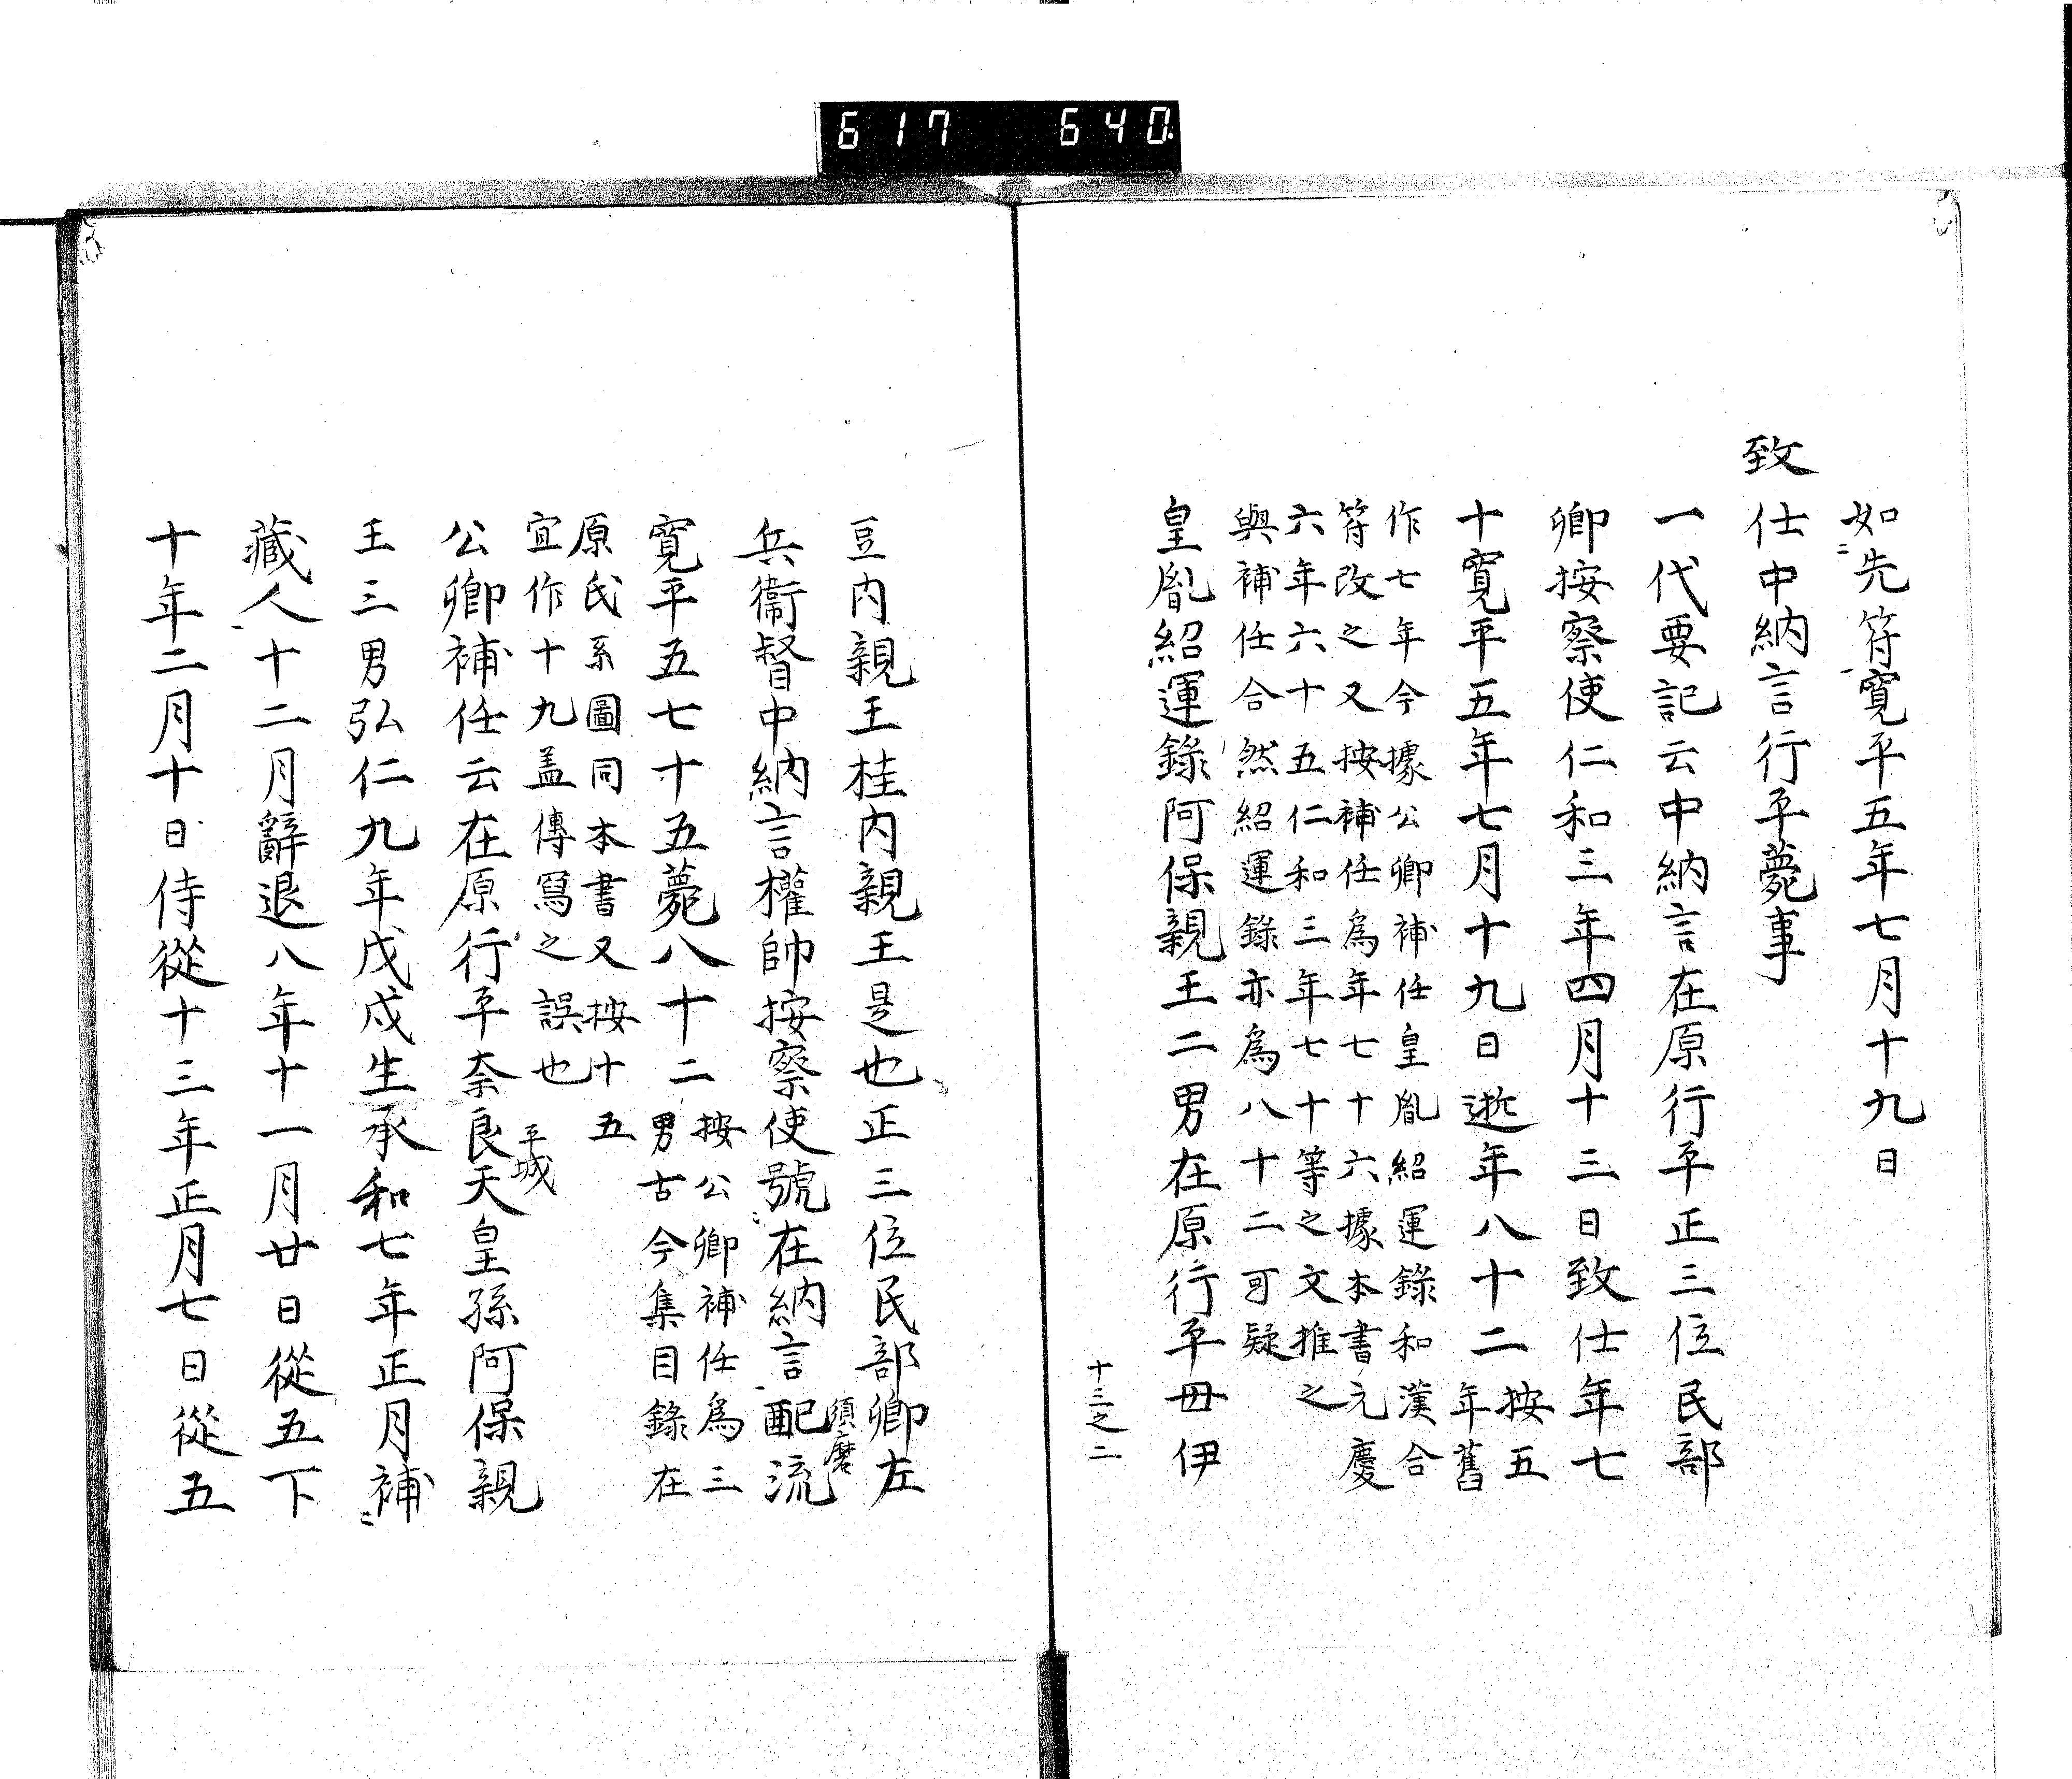 617 640
如先符寛平五年七月十九日
致仕中納言行平薨事
一代要記云中納言在原行平正三位民部
卿按察使仁和三年四月十三日致仕年七
十寛平五年七月十九日逝年八十二按五
年舊
作七年今據公卿補任皇胤紹運錄和漢合
符改之又按補任為年七十六據本書元慶
六年六十五仁和三年七十等之文推之
與補任合然紹運錄亦為八十二可疑
皇胤紹運錄阿保親王二男在原行平毋伊
十三之二
豆内親王桂内親王是也正三位民部卿左
兵衞督中納言權帥按察使號在納言配流
須磨
寛平五七十五薨八十二按公卿補任為三
男古今集目錄在
原氏系圖同本書又按十五
宜作十九盖傳寫之誤也
平城
公卿補任云在原行平奈良天皇孫阿保親
王三男弘仁九年戊戌生承和七年正月補
藏人十二月辭退八年十一月廿日從五下
十年二月十日侍從十三年正月七日從五